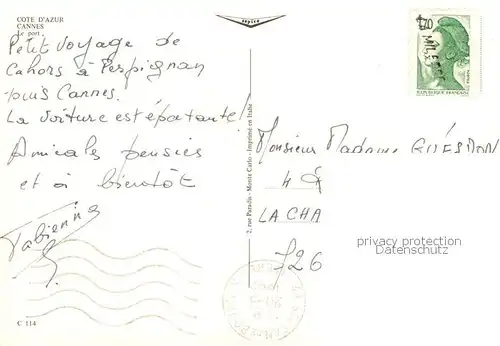 COTE D'AZUR
CANNES
Le port
Petit voyage de
Cahors à Perpignan
puis Cannes.
La voiture est épatante!
Amicales pensées
et à bientôt
Fabienne
C 114
2, rue Paradis - Monte Carlo - Imprimé en Italie
REPUBLIQUE FRANÇAISE
Monsieur Madame
4
LA CHA
726
privacy protection
Datenschutz